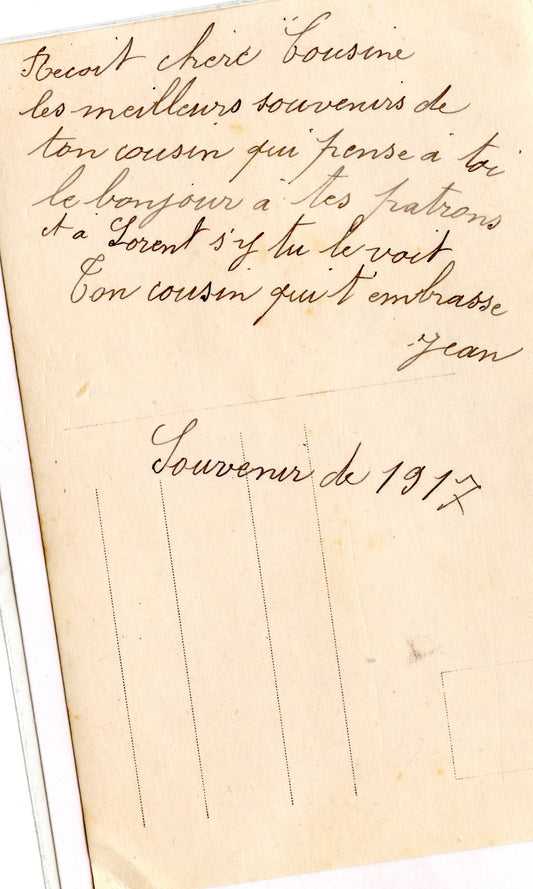 Recoit cheré Cousine
les meilleurs souvenirs de
ton cousin qui pense a toi
le bonjour a tes patrons
et a Lorent s'y tu le voit
Ton cousin qui t'embrasse
Jean
Souvenir de 1917